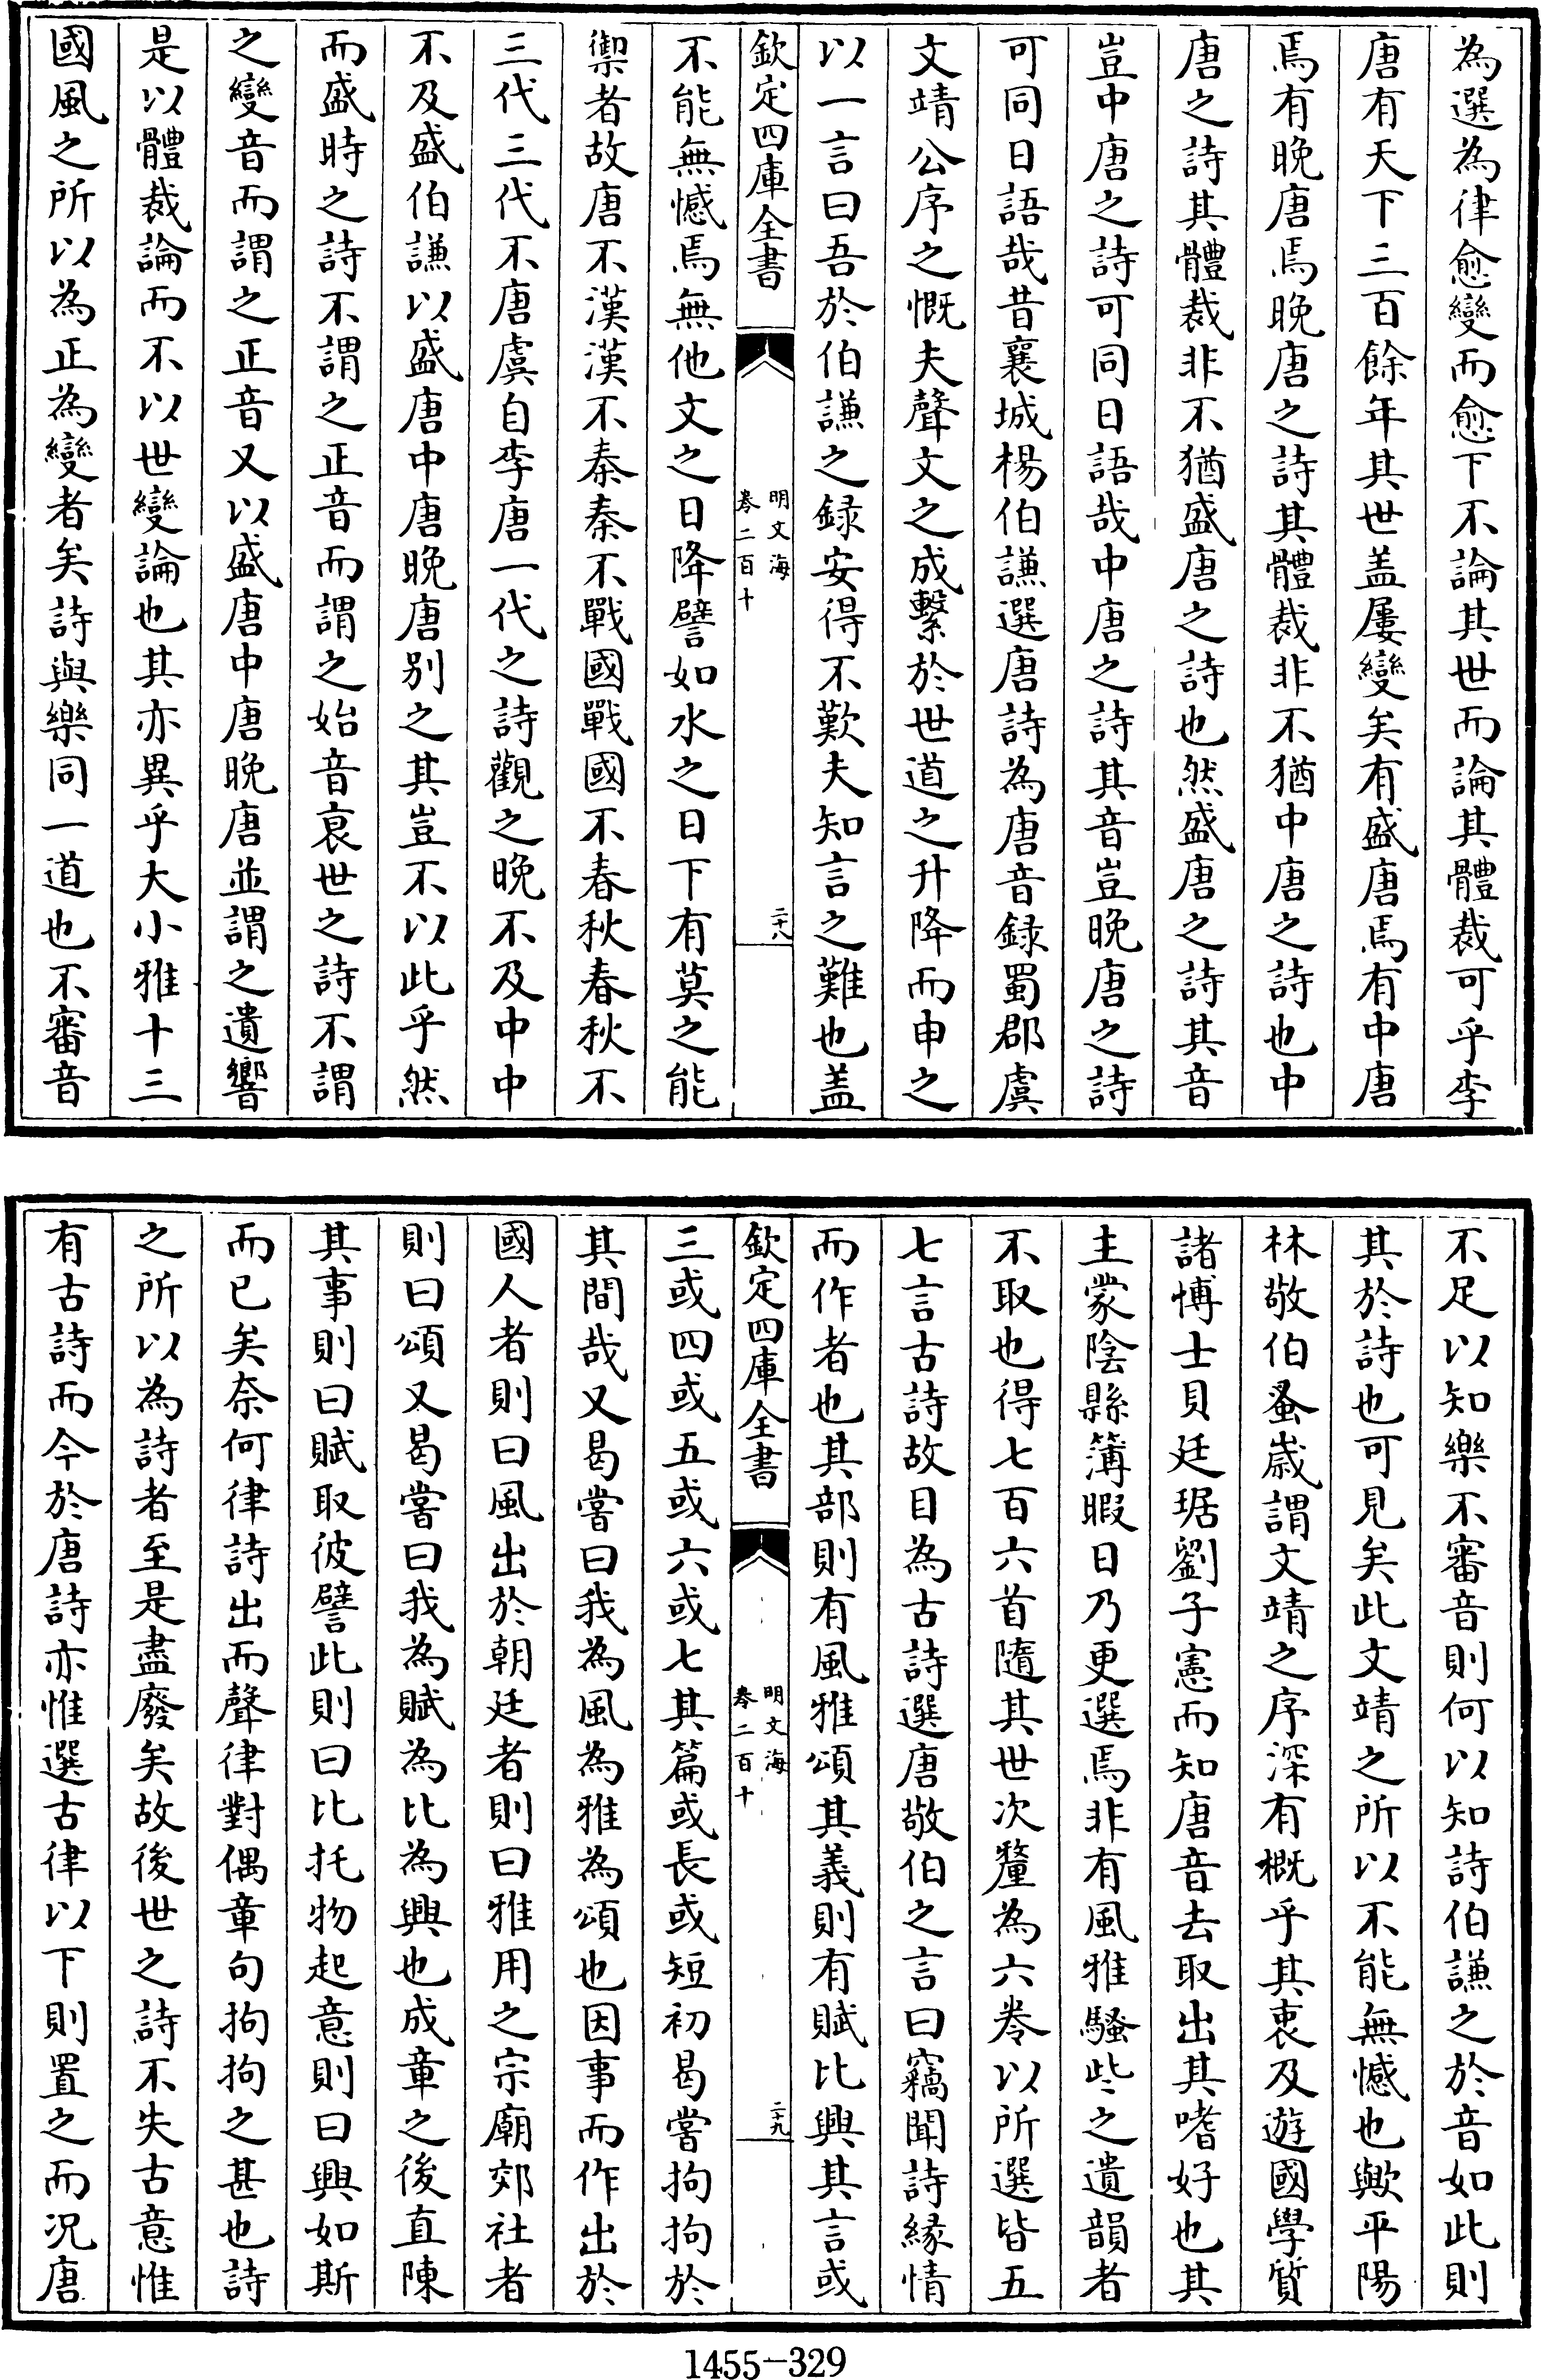 為選為律愈變而愈下不論其世而論其體裁可乎李
唐有天下三百餘年其世盖屢變矣有盛唐焉有中唐
焉有晚唐焉晚唐之詩其體裁非不猶中唐之詩也中
唐之詩其體裁非不猶盛唐之詩也然盛唐之詩其音
豈中唐之詩可同日語哉中唐之詩其音豈晚唐之詩
可同日語哉昔襄城楊伯謙選唐詩為唐音録蜀郡虞
文靖公序之慨夫聲文之成繫於世道之升降而申之
以一言曰吾於伯謙之録安得不歎夫知言之難也盖
欽定四庫全書
明文海
卷二百十
二十八
不能無憾焉無他文之日降譬如水之日下有莫之能
禦者故唐不漢漢不秦秦不戰國戰國不春秋春秋不
三代三代不唐虞自李唐一代之詩觀之晚不及中中
不及盛伯謙以盛唐中唐晚唐别之其豈不以此乎然
而盛時之詩不謂之正音而謂之始音衰世之詩不謂
之變音而謂之正音又以盛唐中唐晚唐並謂之遺響
是以體裁論而不以世變論也其亦異乎大小雅十三
國風之所以為正為變者矣詩與樂同一道也不審音
不足以知樂不審音則何以知詩伯謙之於音如此則
其於詩也可見矣此文靖之所以不能無憾也歟平陽
林敬伯蚤歳謂文靖之序深有概乎其衷及遊國學質
諸博士貝廷琚劉子憲而知唐音去取出其嗜好也其
主蒙陰縣簿暇日乃更選焉非有風雅騷些之遺韻者
不取也得七百六首隨其世次釐為六卷以所選皆五
七言古詩故目為古詩選唐敬伯之言曰竊聞詩縁情
而作者也其部則有風雅頌其義則有賦比興其言或
欽定四庫全書
明文海
卷二百十
二十九
三或四或五或六或七其篇或長或短初曷嘗拘拘於
其間哉又曷嘗曰我為風為雅為頌也因事而作出於
國人者則曰風出於朝廷者則曰雅用之宗廟郊社者
則曰頌又曷嘗曰我為賦為比為興也成章之後直陳
其事則曰賦取彼譬此則曰比托物起意則曰興如斯
而已矣奈何律詩出而聲律對偶章句拘拘之甚也詩
之所以為詩者至是盡廢矣故後世之詩不失古意惟
有古詩而今於唐詩亦惟選古律以下則置之而况唐
1455-329